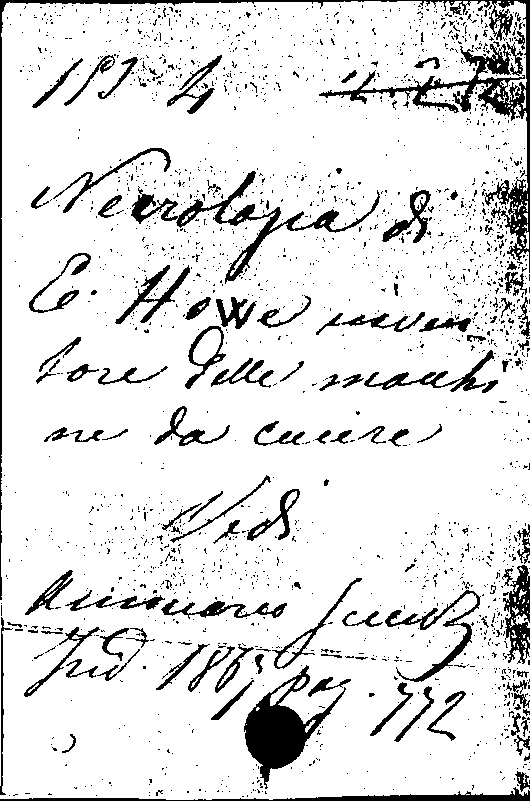 Necrologia di
E. Howe inven-
tore delle macchi
ne da cucire
Vedi
Annuario Scient
Ind. 1867 pag. 772